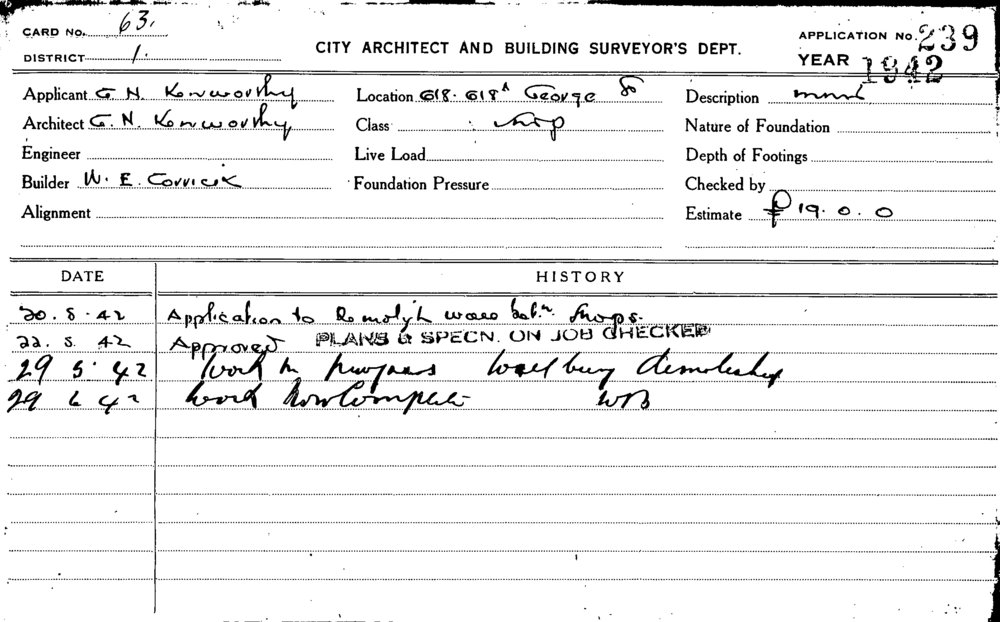 CARD No. 63.
DISTRICT 1.
CITY ARCHITECT AND BUILDING SURVEYOR'S DEPT.
APPLICATION No. 239
YEAR 1942
Applicant G. N. Kenworthy
Architect G. N. Kenworthy
Engineer
Builder W. E. Corrick
Alignment
Location 618-618A George St
Class Shop
Live Load
Foundation Pressure
Description
Nature of Foundation
Depth of Footings
Checked by
Estimate £19.0.0
DATE HISTORY
20.5.42 Application to Demolish betn. Shops.
22.5.42 Approved PLANS & SPECN. ON JOB CHECKED
29 5. 42 Work in progress Wall being demolished
29 6 42 Work Now Complete WB